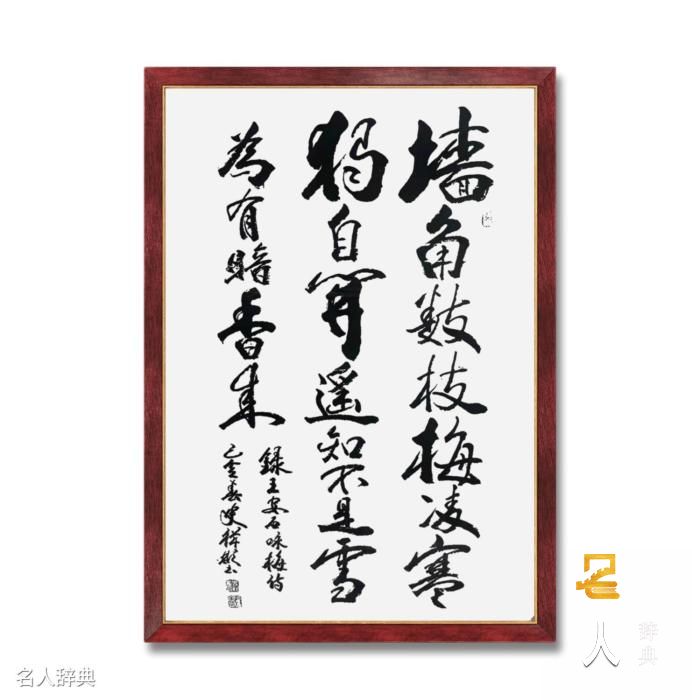 墙角数枝梅凌寒
獨自開遥知不是雪
為有暗香来
録王安石咏梅诗
春
名人辞典
人
辞典